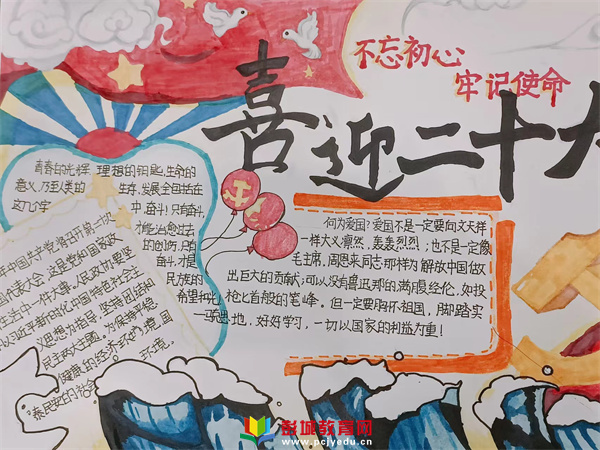 不忘初心
牢记使命
喜迎二十大
青春的光辉,理想的钥匙,生命的
意义,乃至人类的生存,发展全包括在
这几个字中,奋斗!只有奋斗,
才能治愈过去
的创伤,只有
奋斗,才是
民族的
希望和
何为爱国?爱国不是一定要向文天祥
一样大义凛然、轰轰烈烈;也不是一定像
毛主席、周恩来同志那样为解放中国做
出巨大的贡献;可以没有鲁迅那的满腹经伦、如投
枪匕首般的笔峰。但一定要胸怀祖国,脚踏实
地,好好学习,一切以国家的利益为重!
年中国共产党将召开第二十次
国代表大会,这是党和国家政
治生活中一件大事,人民政协要坚
以习近平新时代中国特色社会主
义思想为指导,坚持团结和
民主两大主题,为保持平稳
健康的经济环境、国
泰民安的社会
彭城教育网
www.pcjyedu.cn